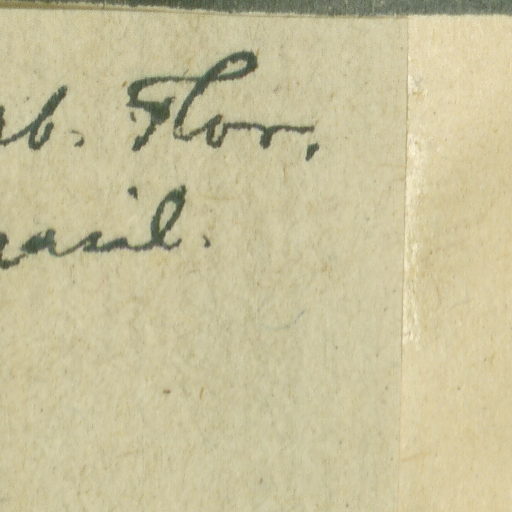 b. Flor.
rasil.